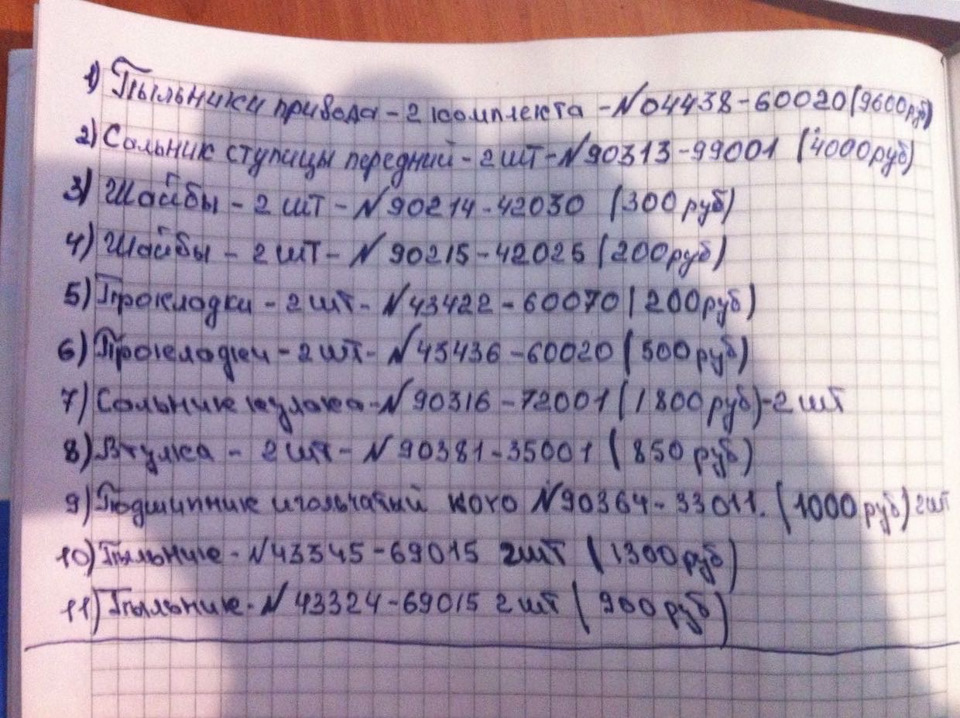 1) Пыльники привода - 2 комплекта - N04438-60020 (9600руб)
2) Сальник ступицы передний - 2 шт - N90313-99001 (4000руб)
3) Шайбы - 2 шт - N90214-42030 (300руб)
4) Шайбы - 2 шт - N 90215-42025 (200руб)
5) Прокладки - 2 шт - N43422-60070 (200руб)
6) Прокладки - 2 шт - N43436-60020 (500руб)
7) Сальник кулака - N90316-72001 (1800руб) - 2 шт
8) Втулка - 2 шт - N 90381-35001 (850 руб)
9) Подшипник игольчатый кого N90364-33011. (1000руб) 2 шт
10) Пыльник - N43345-69015 2шт (1300руб)
11) Пыльник - N 43324-69015 2 шт (900руб)